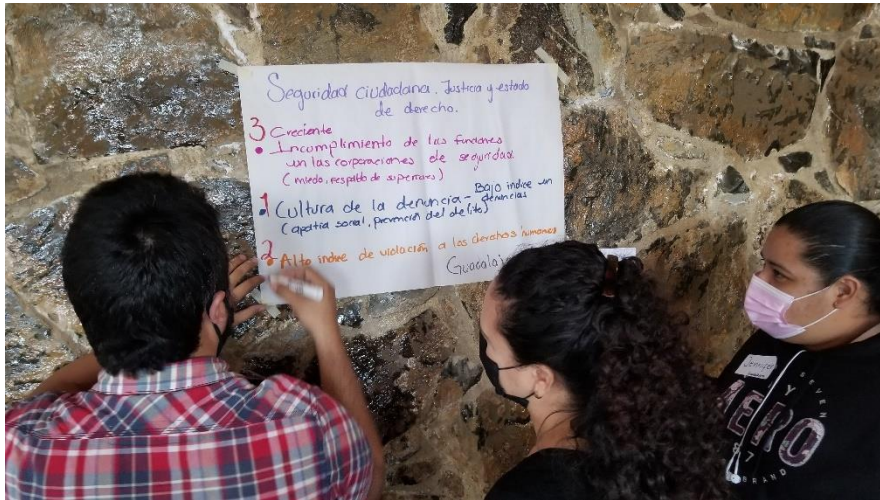 Seguridad ciudadana. Justicia y estado
de derecho.
3 Creciente
• Incumplimiento de las funciones
en las corporaciones de seguridad
(miedo, respaldo de superiores)
1 Cultura de la denuncia - Bajo indice en
denuncias
(apatia social, prevención del delito)
2 • Alto indice de violación a los derechos humanos
Jennifer
SEVEN
NY
AERO
87
BRAND